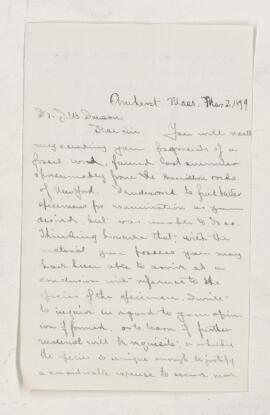 Amherst Mass. Mar 2, 1899
Dr. J. W. Dawson
Dear sir. You will recall
my sending you fragments of a
fossil wood, found last summer
presumably from the Hamilton rocks
of I endeavored to find better
specimens for examination as you
desired, but was unable to do so.
Thinking however that, with the
material you possess you may
have been able to arrive at a
conclusion with reference to the
species of the specimen, I write
to inquire in regard to your opin
ion if formed, or to learn if further
material will be requisite, or whether
the species is unique enough to justify
a considerable expense to secure more